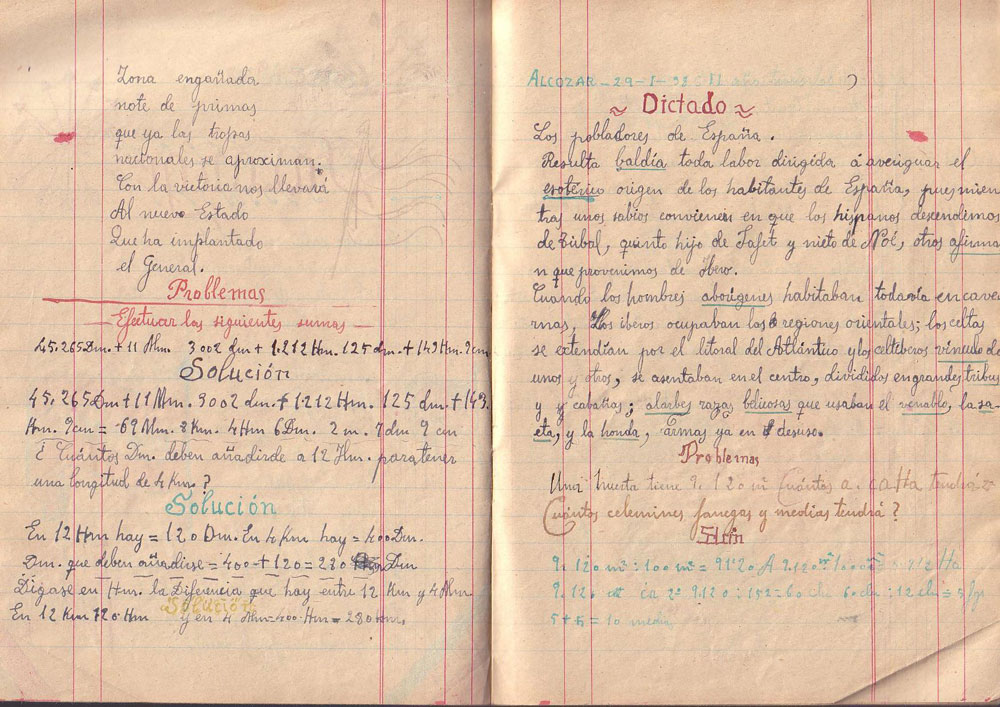 Zona engañada
note de primas
que ya las tropas
nacionales se aproximan.
Con la victoria nos llevará
Al nuevo Estado
Que ha implantado
el General.
Problemas
Efectuar las siguientes sumas
45.265 Dm. + 11 Mm. 3002 dm + 1.212 Hm. 125 dm. + 149 Hm. 9 cm
Solución
45.265 Dm + 11 Mm. 3002 dm. + 1212 Hm. 125 dm + 149.
Hm. 9 cm = 69 Mm. 8 Km. 4 Hm 6 Dm. 2 m. 7 dm 9 cm
¿Cuántos Dm. deben añadirse a 12 Hm. para tener
una longitud de 4 Km.?
Solución
En 12 Hm hay = 120 Dm. En 4 Km hay = 400 Dm.
Dm. que deben añadirse = 400 + 120 = 280 Dm
Digase en Hm. la Diferencia que hay entre 12 Km y 4 Mm.
Solución
En 12 Km 120 Hm y en 4 Mm = 400 Hm = 280 Hm.
ALCOZAR - 29 - 1 - 38
~ Dictado ~
Los pobladores de España.
Resulta baldía toda labor dirigida á averiguar el
esotérico origen de los habitantes de España, pues mien
tras unos sabios convienen en que los hispanos descendemos
de Túbal, quinto hijo de Jafet y nieto de Noé, otros afirma
n que provenimos de Ibero.
Cuando los hombres aborígenes habitaban todavía en caver
nas, los iberos ocupaban las regiones orientales; los celtas
se extendían por el litoral del Atlántico y los celtiberos vinculo de
unos y otros, se asentaban en el centro, divididos en grandes tribus
y y cabañas; alarbes razas belicosas que usaban el venablo, la sa-
eta, y la honda, armas ya en desuso.
Problemas
Una huerta tiene 9.120 m² Cuántos a. ca Ha tendrá
Cuántos celemines fanegas y medias tendrá?
Slción
9.120 m² : 100 m² = 91'20 A
5 + 5 = 10 medias